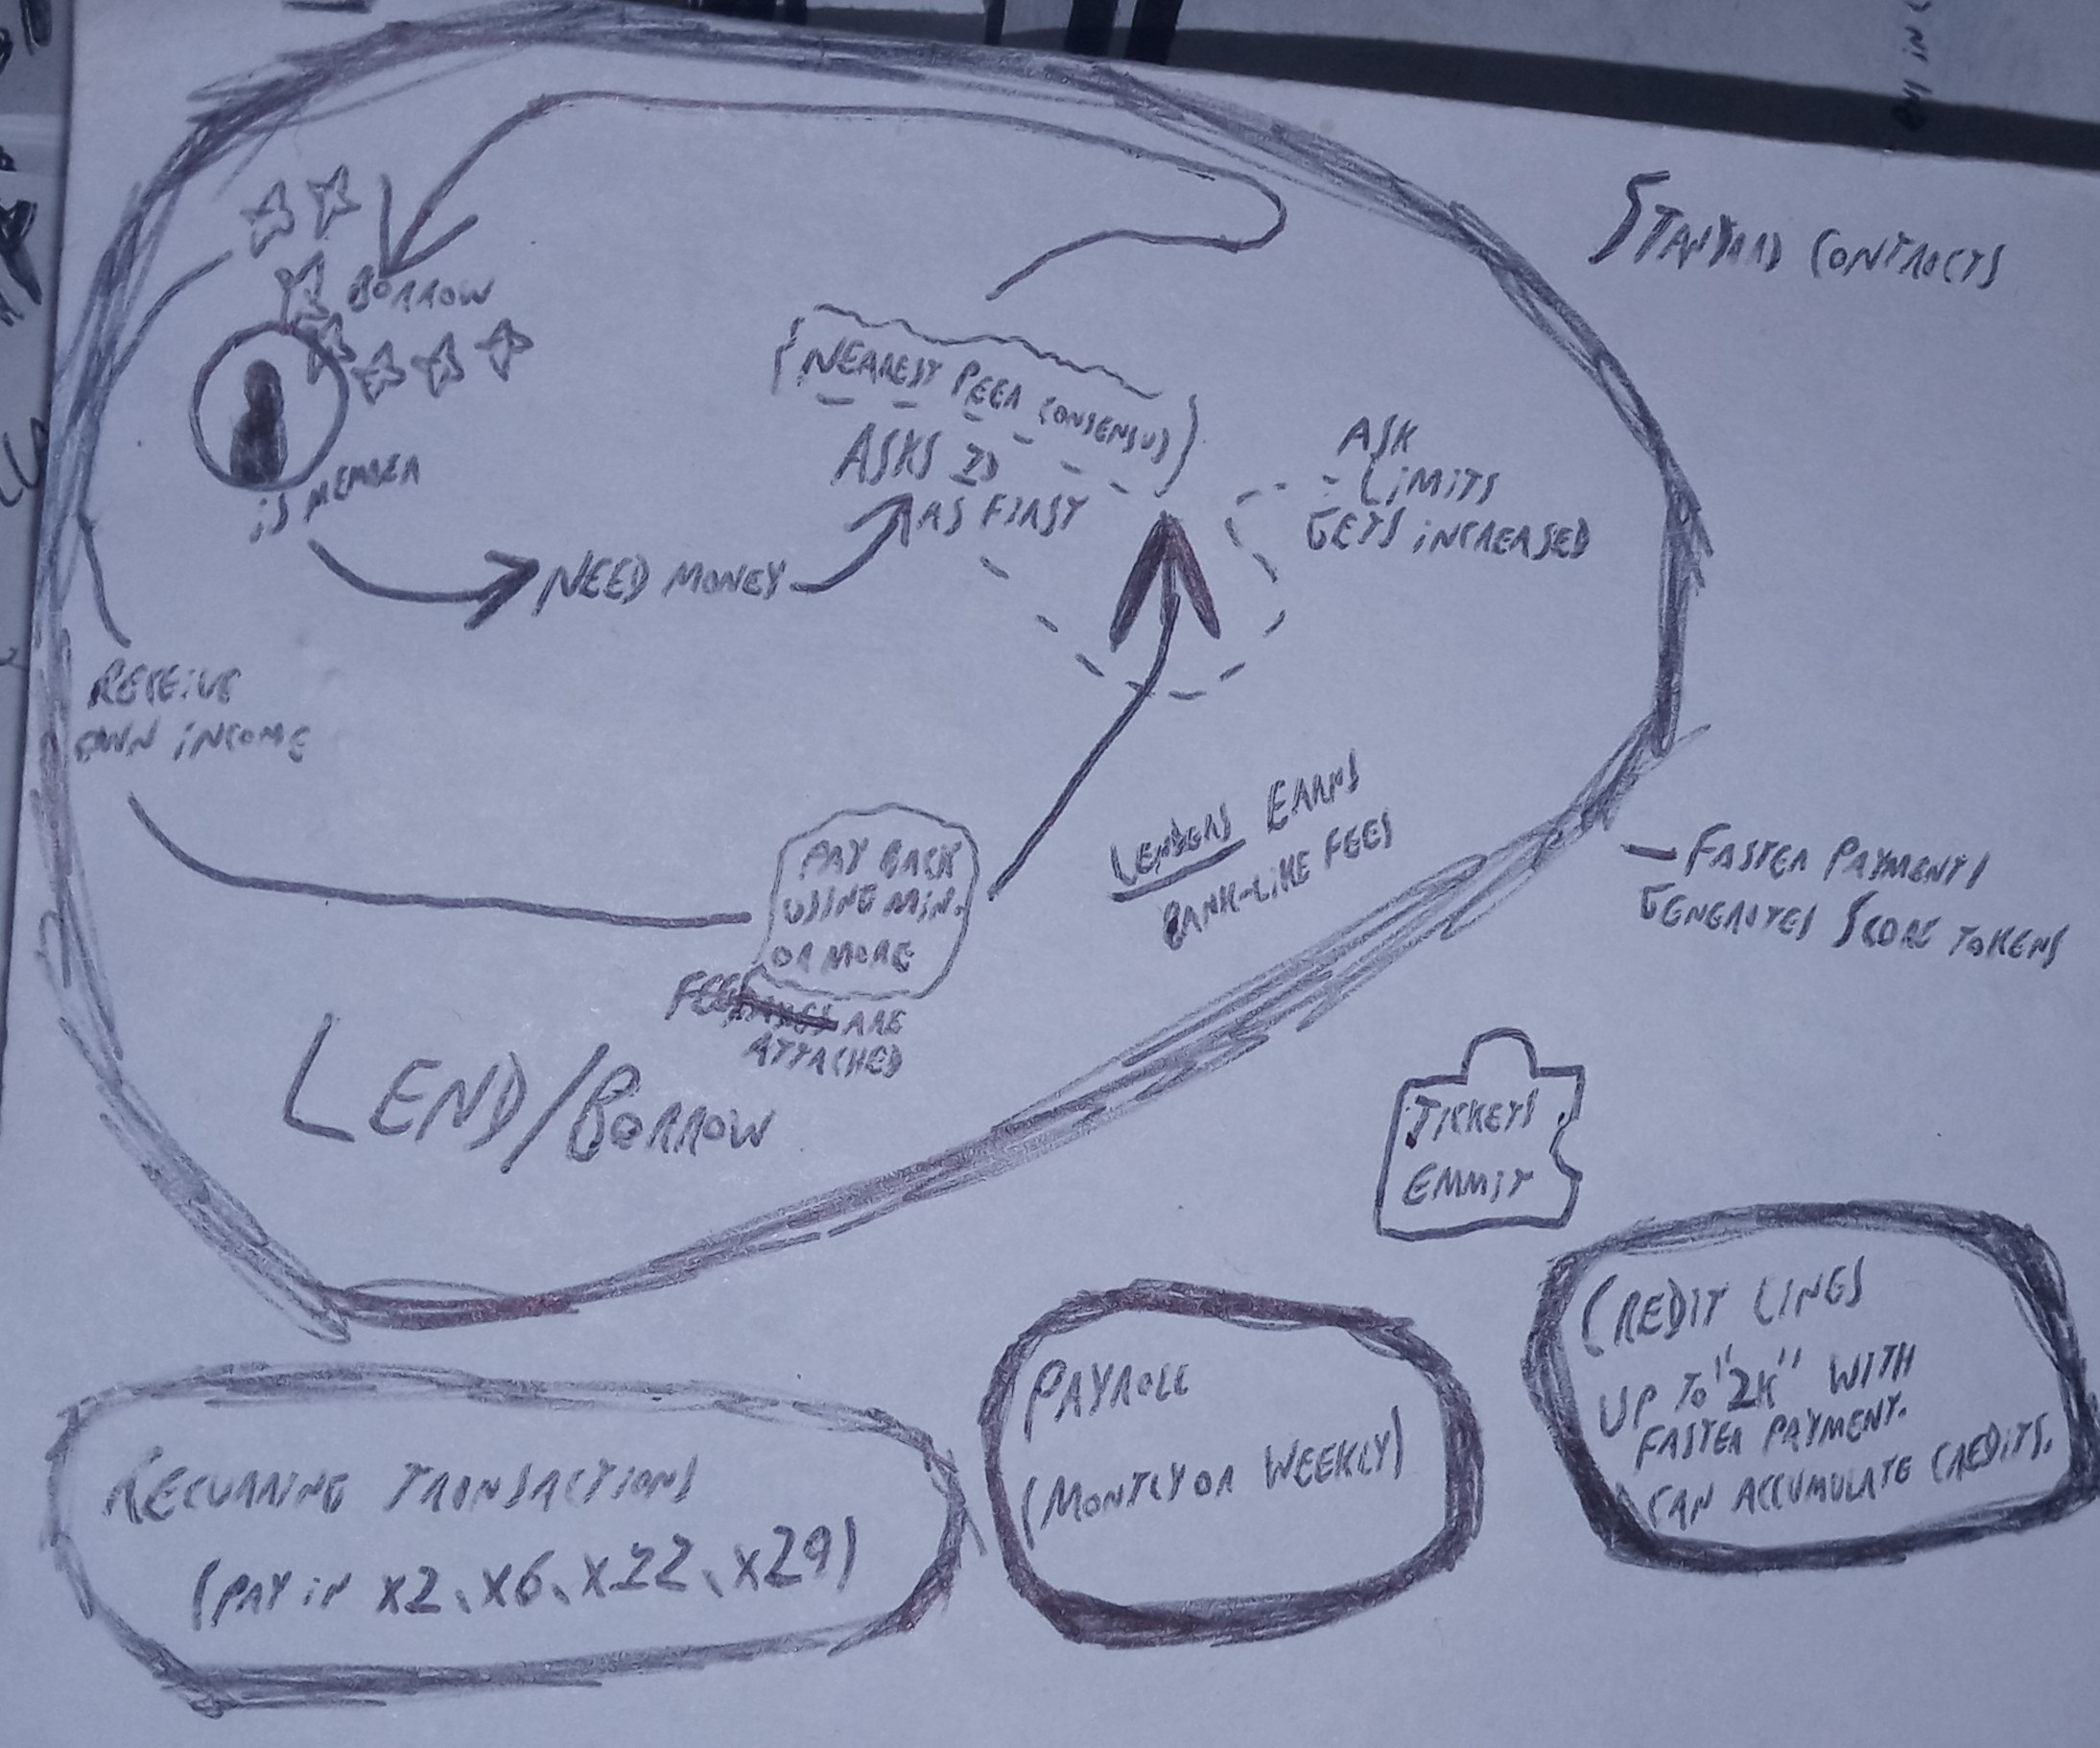 STANDARD CONTRACTS
BORROW
IS MEMBER
NEED MONEY
(NEAREST PEER CONSENSUS)
ASKS
AS FIRST
ASK
LIMITS
GETS INCREASED
RECEIVE
OWN INCOME
PAY BACK
USING MIN.
OR MORE
FEES ARE
ATTACHED
LENDERS EARNS
BANK-LIKE FEES
LEND/BORROW
— FASTER PAYMENTS
GENERATES SCORE TOKENS
TICKETS
EMMIT
RECURRING TRANSACTIONS
(PAY IN X2, X6, X22, X29)
PAYROLL
(MONTLY OR WEEKLY)
CREDIT LINES
UP TO "2K" WITH
FASTER PAYMENT.
CAN ACCUMULATE CREDITS.